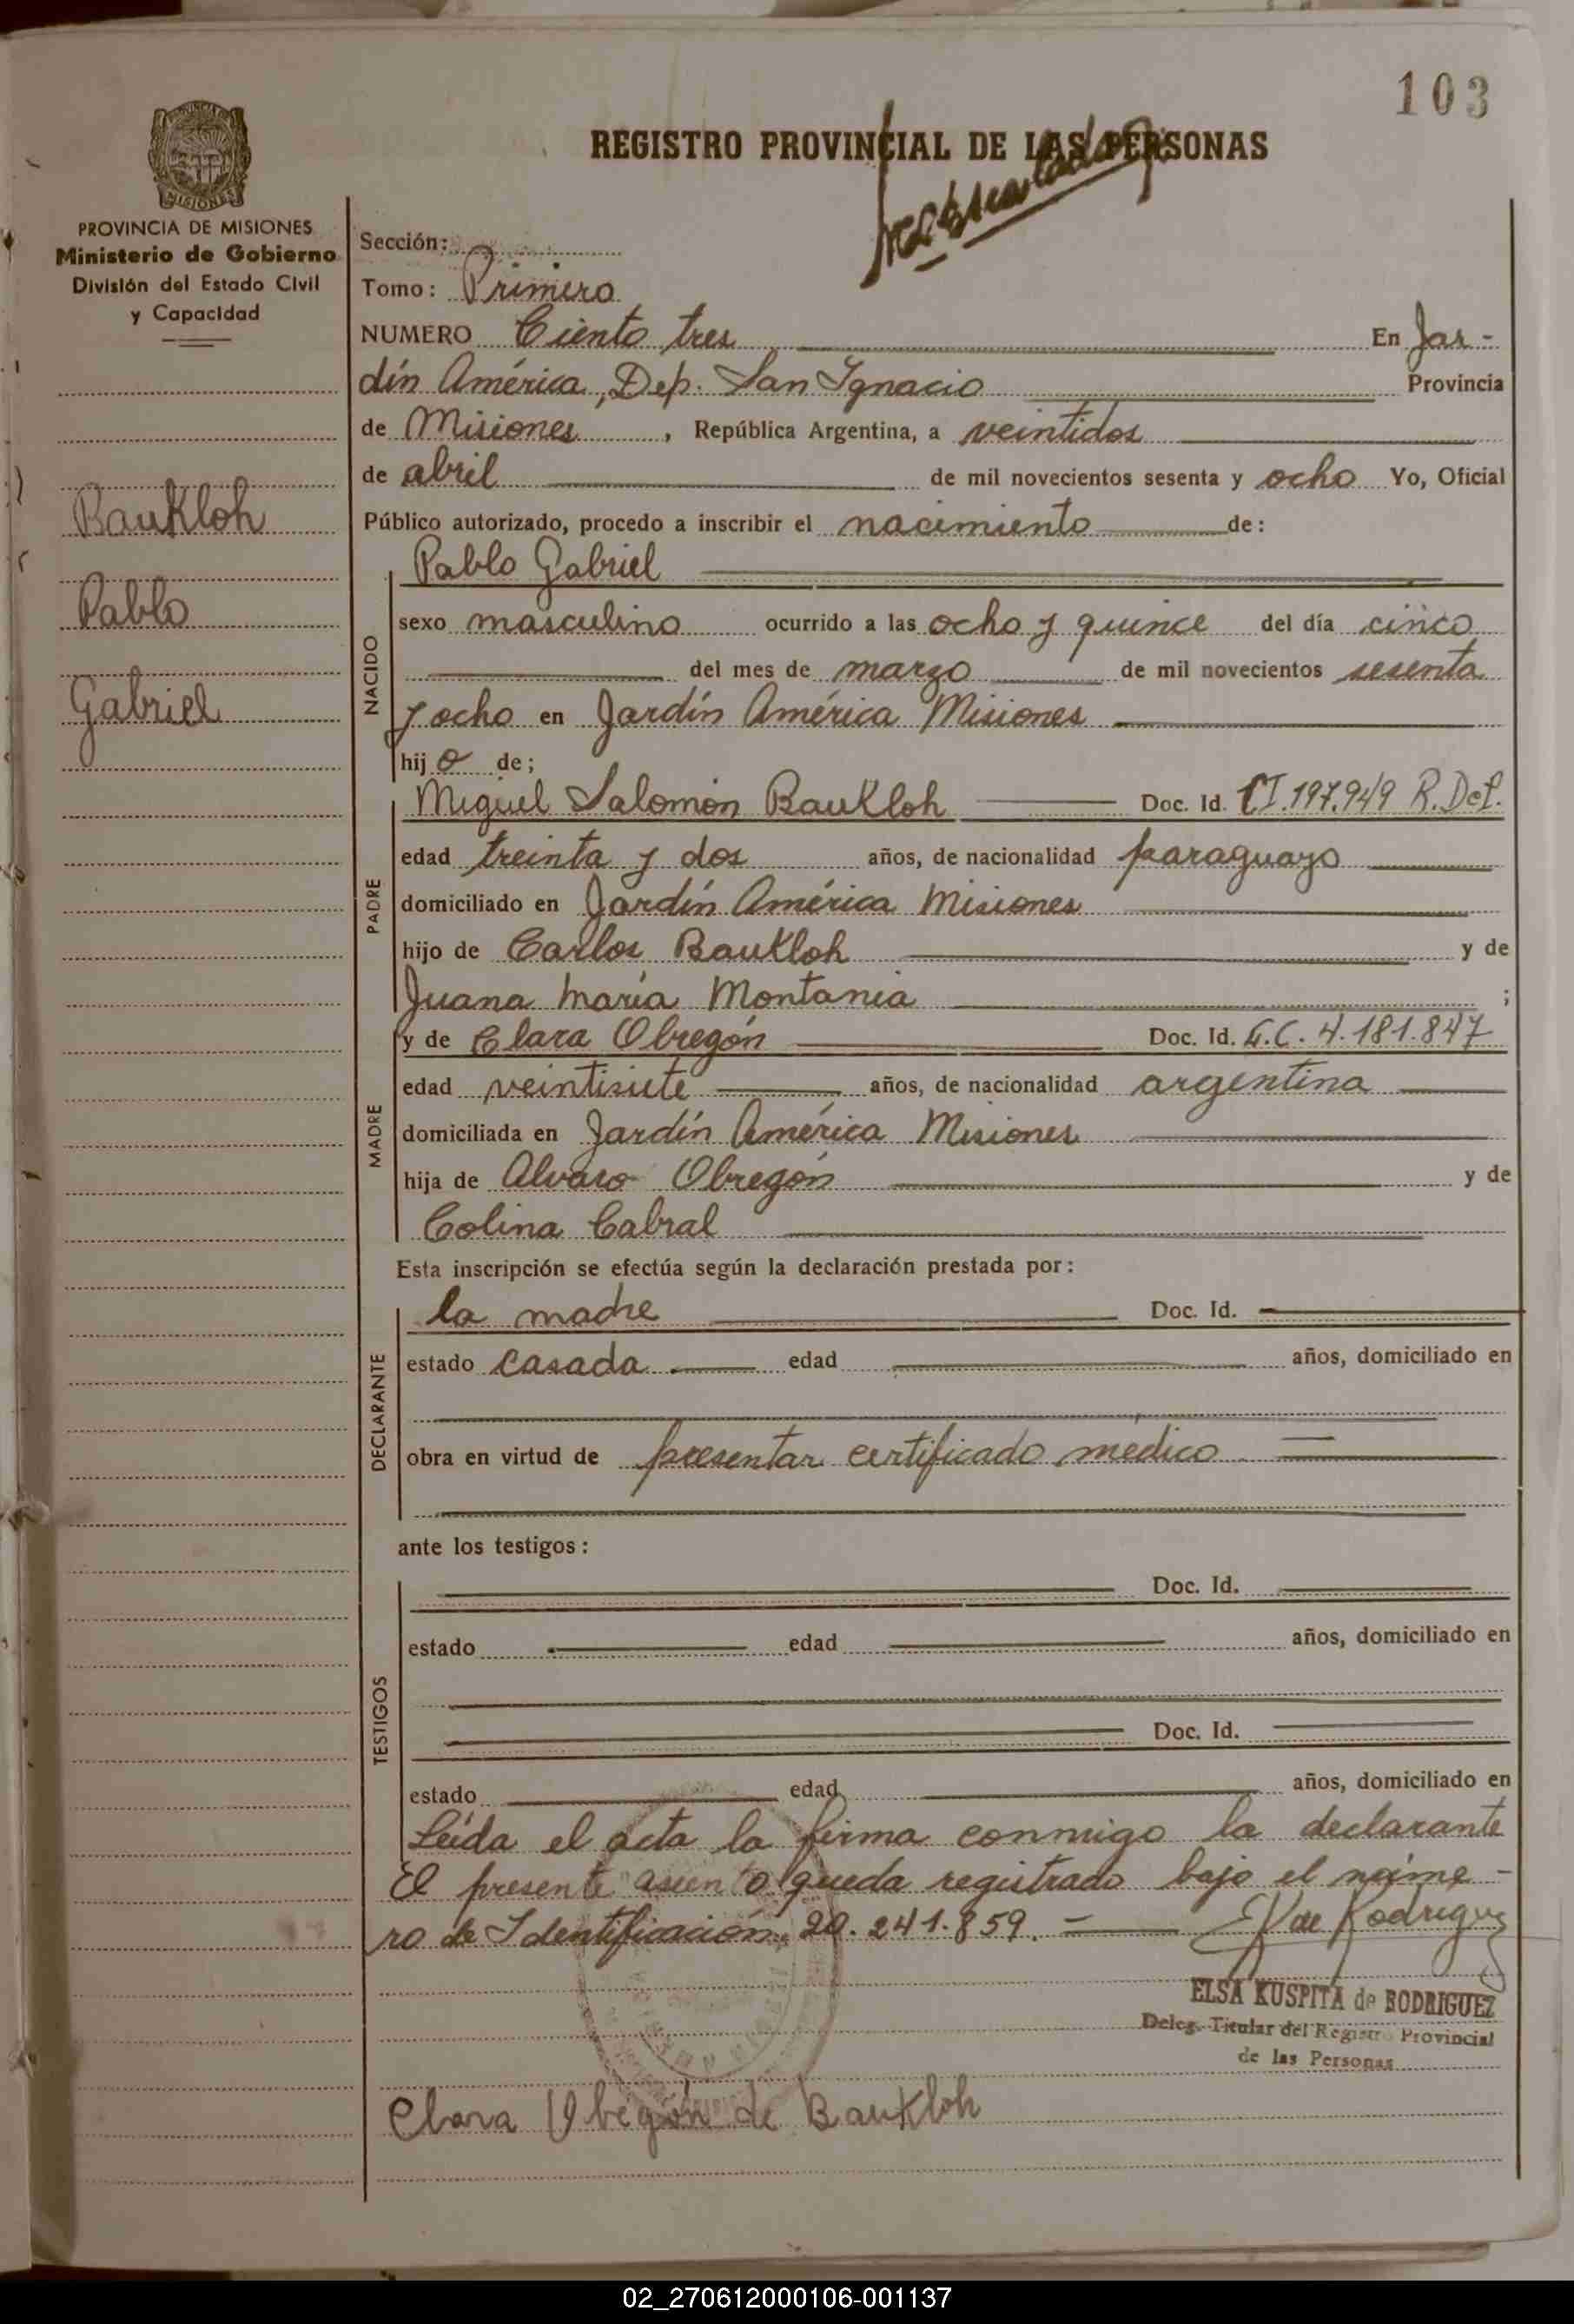 103
REGISTRO PROVINCIAL DE LAS PERSONAS
PROVINCIA DE MISIONES
Ministerio de Gobierno
División del Estado Civil
y Capacidad
Baukloh
Pablo
Gabriel
Sección:
Tomo: Primero
NUMERO Ciento tres En Jar-
dín América, Dep. San Ignacio Provincia
de Misiones, República Argentina, a veintidos
de abril de mil novecientos sesenta y ocho Yo, Oficial
Público autorizado, procedo a inscribir el nacimiento de:
Pablo Gabriel
NACIDO
sexo masculino ocurrido a las ocho y quince del día cinco
del mes de marzo de mil novecientos sesenta
y ocho en Jardín América Misiones
hijo de;
PADRE
Miguel Salomón Baukloh Doc. Id. CI.197.949 R.Def.
edad treinta y dos años, de nacionalidad paraguayo
domiciliado en Jardín América Misiones
hijo de Carlos Baukloh y de
Juana María Montania ;
MADRE
y de Clara Obregón Doc. Id. L.C. 4.181.847
edad veintisiete años, de nacionalidad argentina
domiciliada en Jardín América Misiones
hija de Alvaro Obregón y de
Colina Cabral
Esta inscripción se efectúa según la declaración prestada por:
DECLARANTE
la madre Doc. Id.
estado casada edad años, domiciliado en
obra en virtud de presentar certificado médico
ante los testigos:
TESTIGOS
Doc. Id.
estado edad años, domiciliado en
Doc. Id.
estado edad años, domiciliado en
Leída el acta la firma conmigo la declarante
El presente asiento queda registrado bajo el núme-
ro de Identificación: 20.241.859.- E K de Rodriguez
ELSA KUSPITA de RODRIGUEZ
Deleg. Titular del Registro Provincial
de las Personas
Clara Obregón de Baukloh
02_270612000106-001137